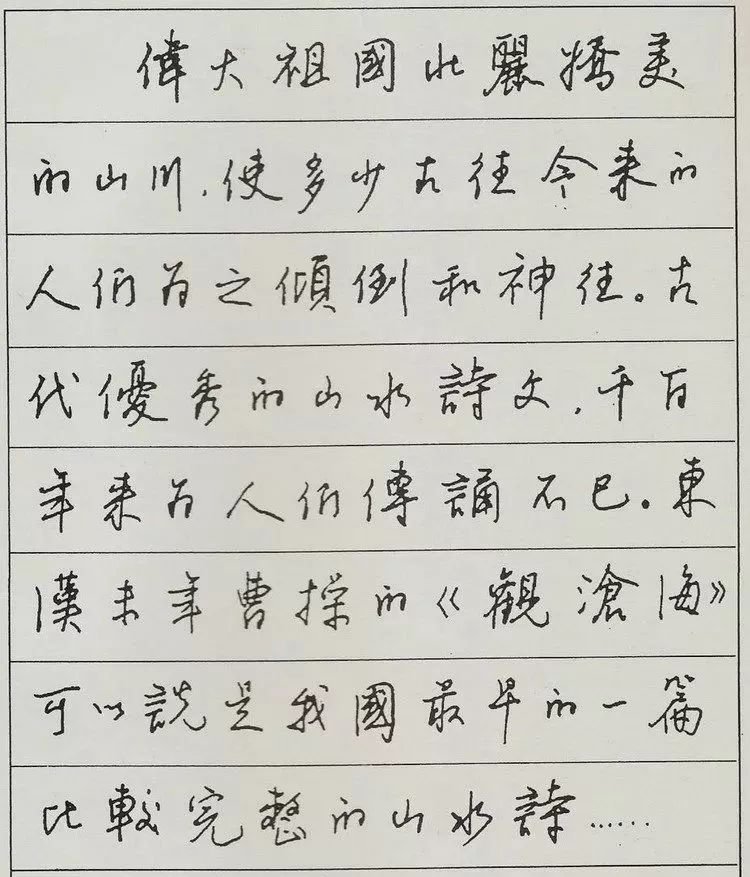 偉大祖國壯麗嬌美
的山川，使多少古往今来的
人们为之傾倒和神往。古
代優秀的山水詩文，千百
年来为人们傳誦不已。東
漢末年曹操的《觀滄海》
可以説是我國最早的一篇
比較完整的山水詩……